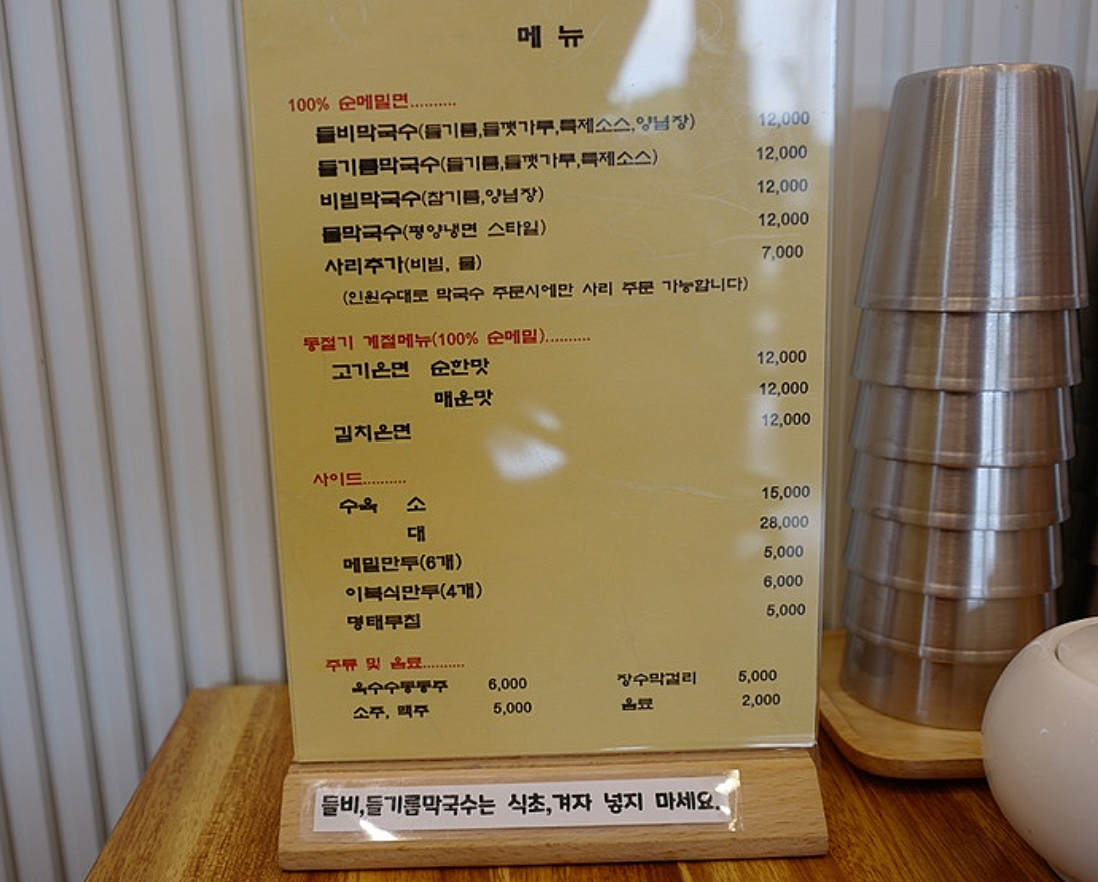 메 뉴
100% 순메밀면..........
들비막국수(들기름,들깻가루,특제소스,양념장) 12,000
들기름막국수(들기름,들깻가루,특제소스) 12,000
비빔막국수(참기름,양념장) 12,000
물막국수(평양냉면 스타일) 12,000
사리추가(비빔, 물) 7,000
(인원수대로 막국수 주문시에만 사리 주문 가능합니다)
동절기 계절메뉴(100% 순메밀)..........
고기온면 순한맛 12,000
매운맛 12,000
김치온면 12,000
사이드..........
수육 소 15,000
대 28,000
메밀만두(6개) 5,000
이북식만두(4개) 6,000
명태무침 5,000
주류 및 음료..........
옥수수동동주 6,000 장수막걸리 5,000
소주, 맥주 5,000 음료 2,000
들비,들기름막국수는 식초,겨자 넣지 마세요.